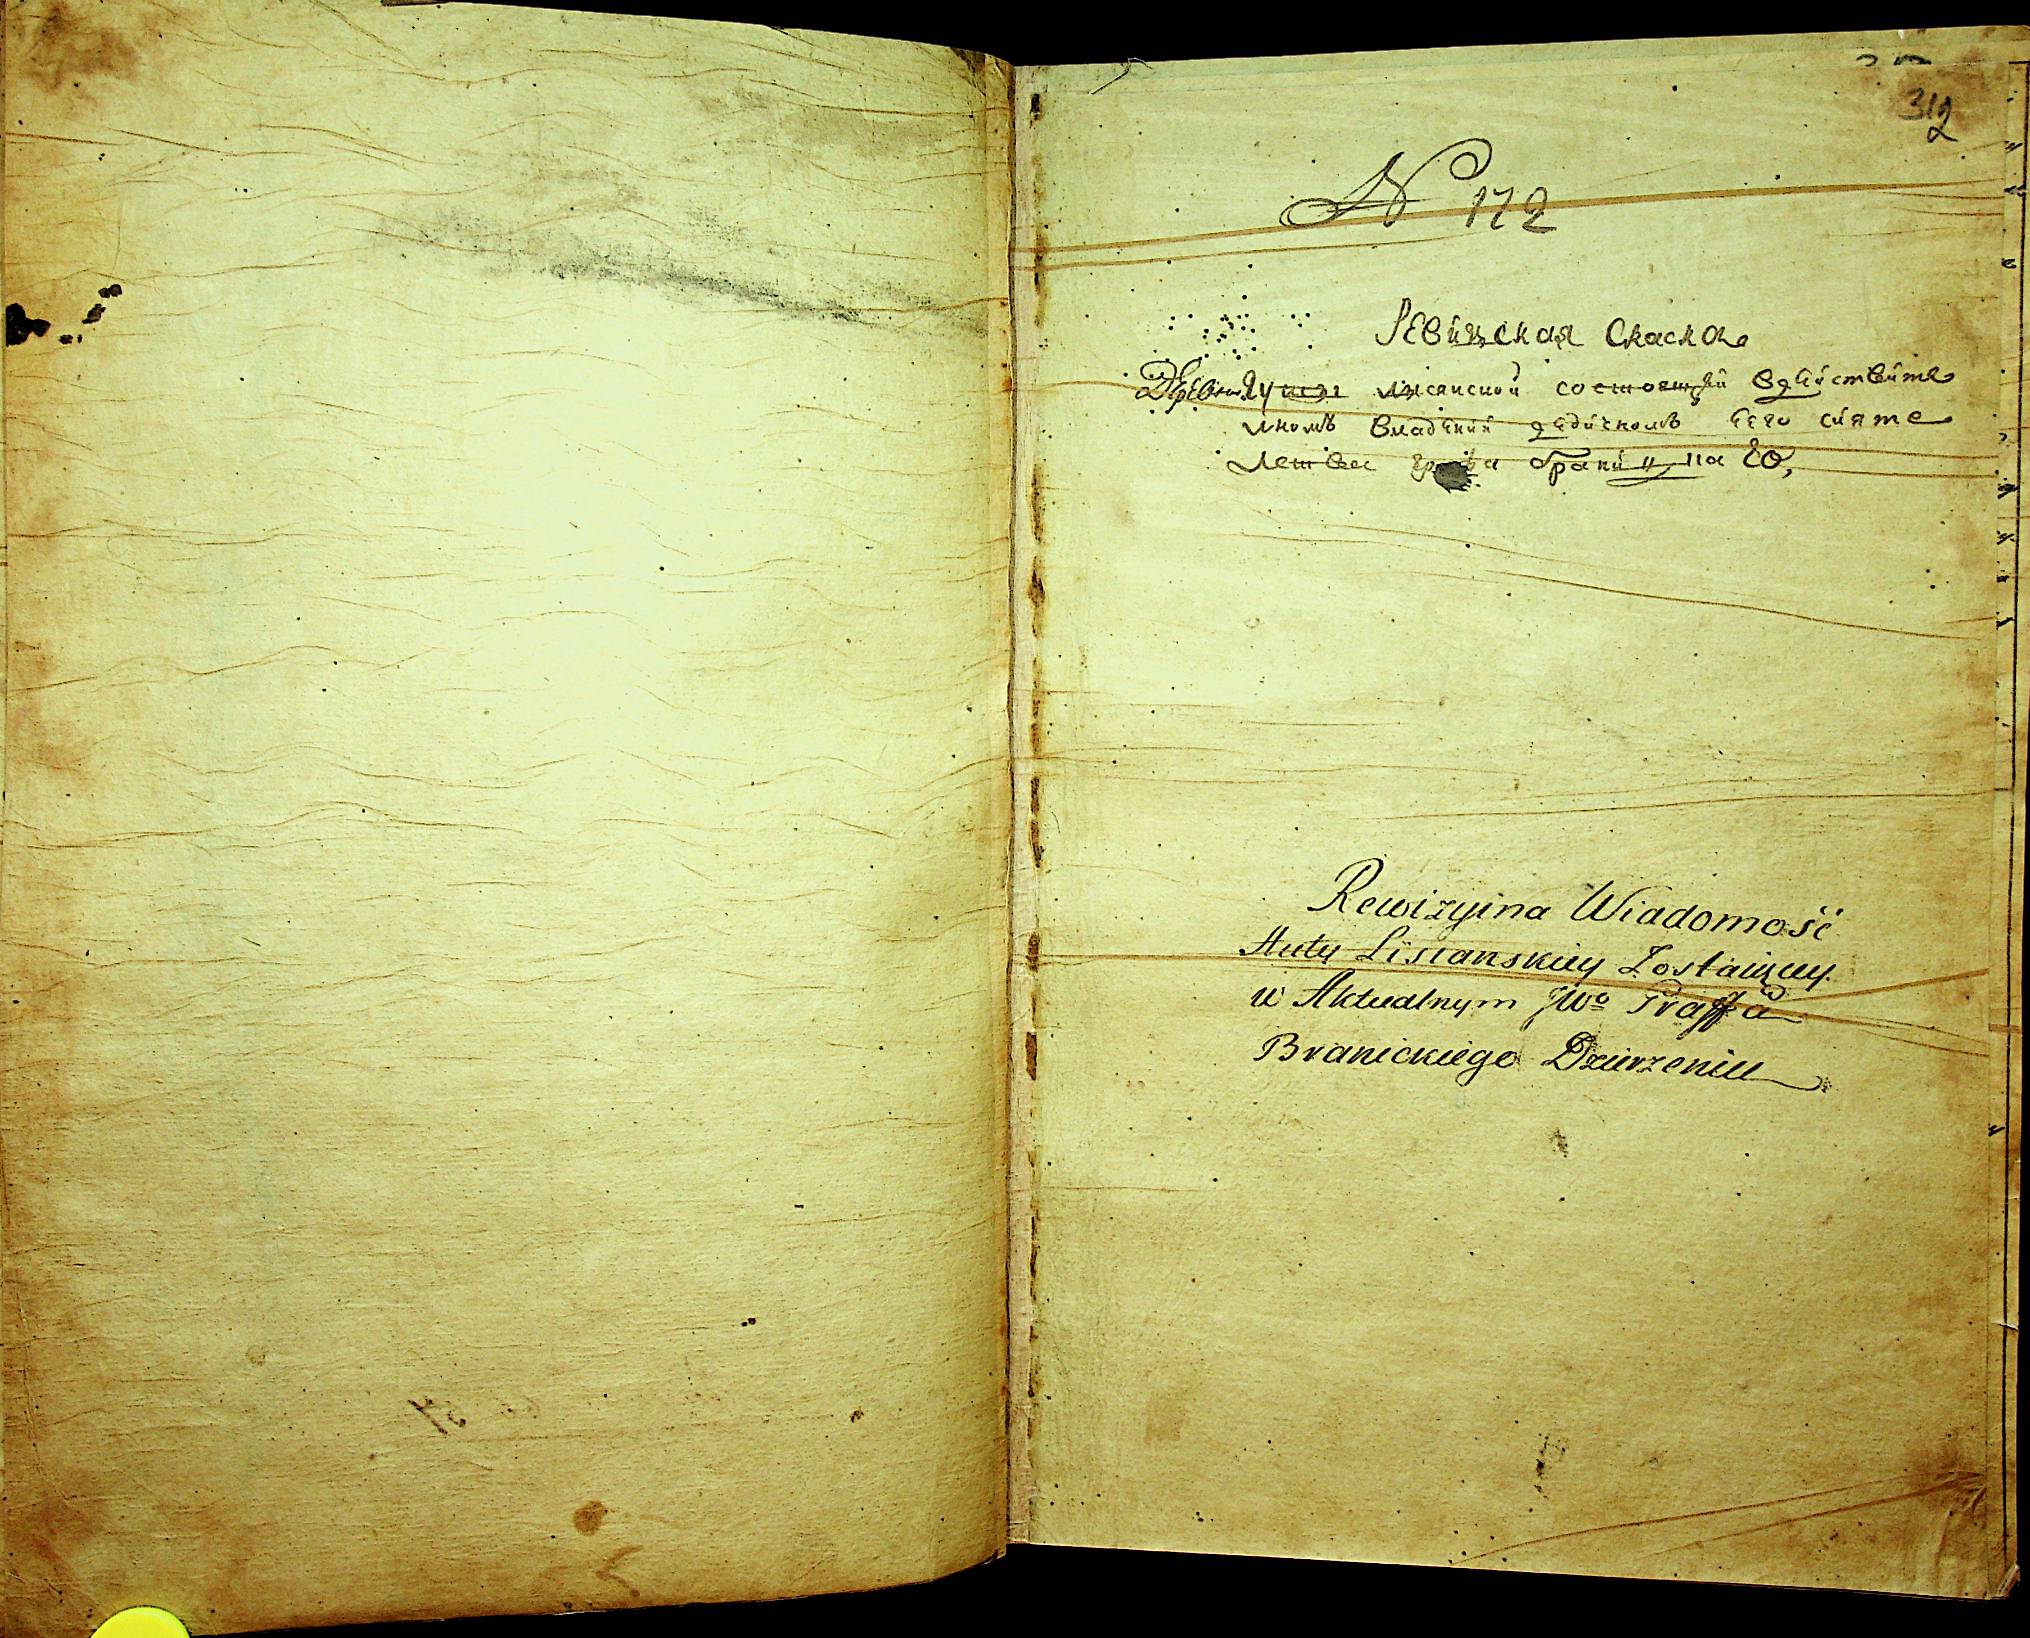 312
N 172
Ревизская Скаска
Деревни Гути лисянской состоящей вдействите
лномъ владении дедичномъ Его сияте
лства графа браницкаго,
Rewizyina Wiadomość
Huty Lisianskiey Zostaiącey
w Aktualnym JWo Graffa
Branickiego Dzierzeniu